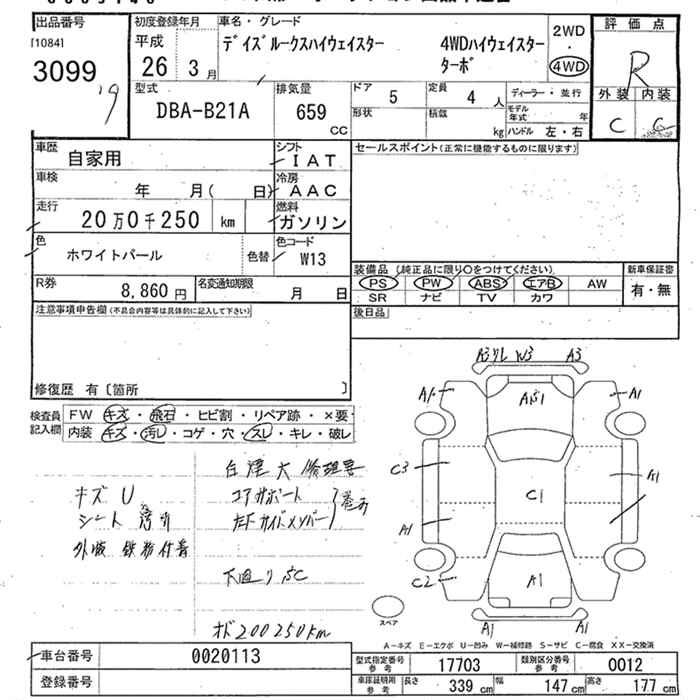 出品番号
[1084]
3099
'9
初度登録年月
平成
26 3月
車名・グレード
デイズルークスハイウェイスター 4WDハイウェイスターターボ
2WD
・
4WD
評価点
R
外装 内装
C C
型式
DBA-B21A
排気量
659
cc
ドア 5
定員 4人
形状
積載 kg
ディーラー・並行
モデル年式 年
ハンドル 左・右
車歴
自家用
シフト
IAT
車検
年 月( 日)
冷房
AAC
走行
20万0千250 km
燃料
ガソリン
色
ホワイトパール
色替
色コード
W13
R券
8,860円
名変通知期限
月 日
セールスポイント(正常に機能するものに限ります)
装備品 (純正品に限り○をつけてください)
PS PW ABS エアB AW
SR ナビ TV カワ
新車保証書
有・無
後日品
注意事項申告欄(不具合内容等は具体的に記入して下さい)
修復歴 有〔箇所 〕
検査員記入欄
FW キズ・飛石・ヒビ割・リペア跡・×要
内装 キズ・汚レ・コゲ・穴・スレ・キレ・破レ
キズ U
シート
外板 鉄粉付着
コアサポート
左F サイドメンバー
下廻り
オド200250km
A3 W3 A3
A1 A1
C3
C1
A1 A1
C2
A1
A1 A1
スペア
A-キズ E-エクボ U-凹み W-補修跡 S-サビ C-腐食 XX-交換済
車台番号 0020113
登録番号
型式指定番号 参考 17703 類別区分番号 参考 0012
車庫証明用 参考 長さ 339cm 幅 147cm 高さ 177cm